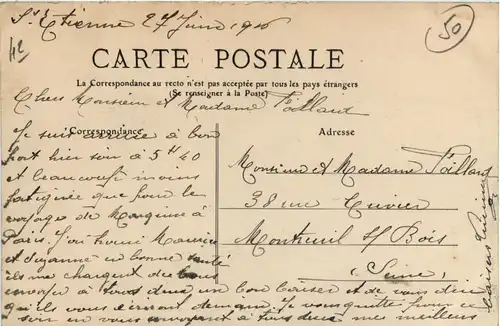 St Etienne 27 Juin 1916
50
42
CARTE POSTALE
La Correspondance au recto n'est pas acceptée par tous les pays étrangers
(Se renseigner à la Poste)
Chers Monsieur et Madame Foillard
Correspondance
Adresse
Je suis arrivée à bon
port hier soir à 5H40
et beaucoup moins
fatiguée que pour le
voyage de à
Paris. J'ai trouvé Maurice
et Suzanne en bonne santé
ils me chargent de vous
envoyer à tous deux un bon baiser et de vous dire
qu'ils vous écriront demain. Je vous quitte pour ce
soir en vous envoyant à tous deux mes meilleurs
Monsieur et Madame Foillard
38 rue Cuvier
Montreuil s/ Bois
(Seine)
baisers